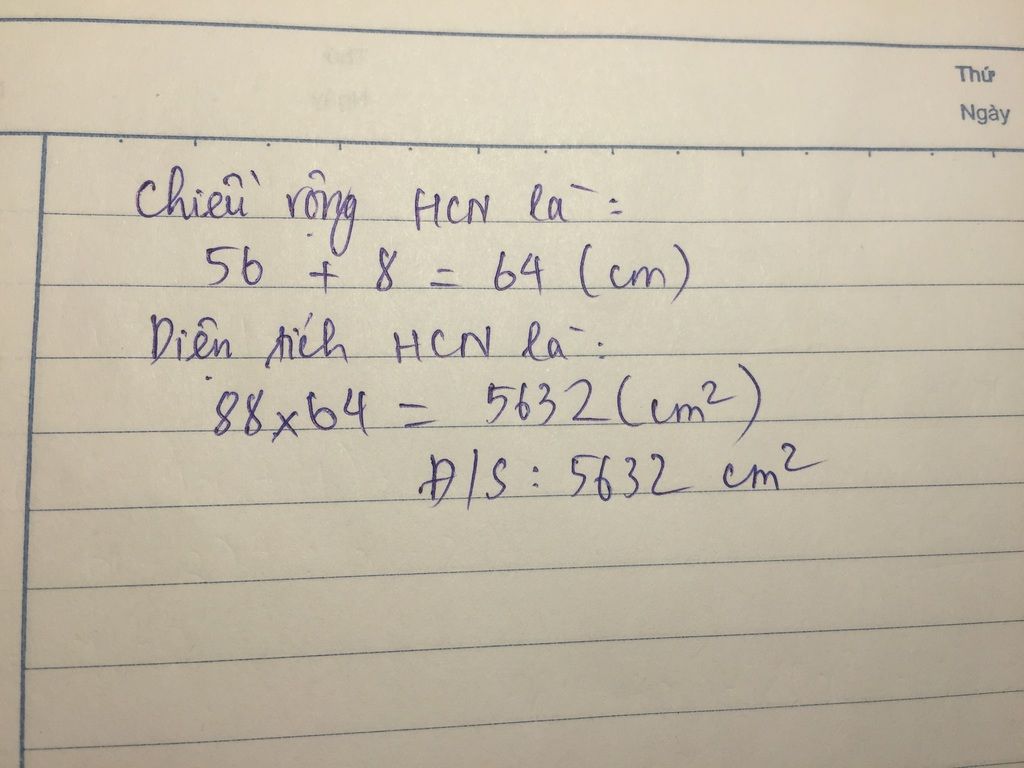 Thứ
Ngày
Chiều rộng HCN là:
56 + 8 = 64 (cm)
Diện tích HCN là:
88x64 = 5632 (cm²)
Đ/S: 5632 cm²